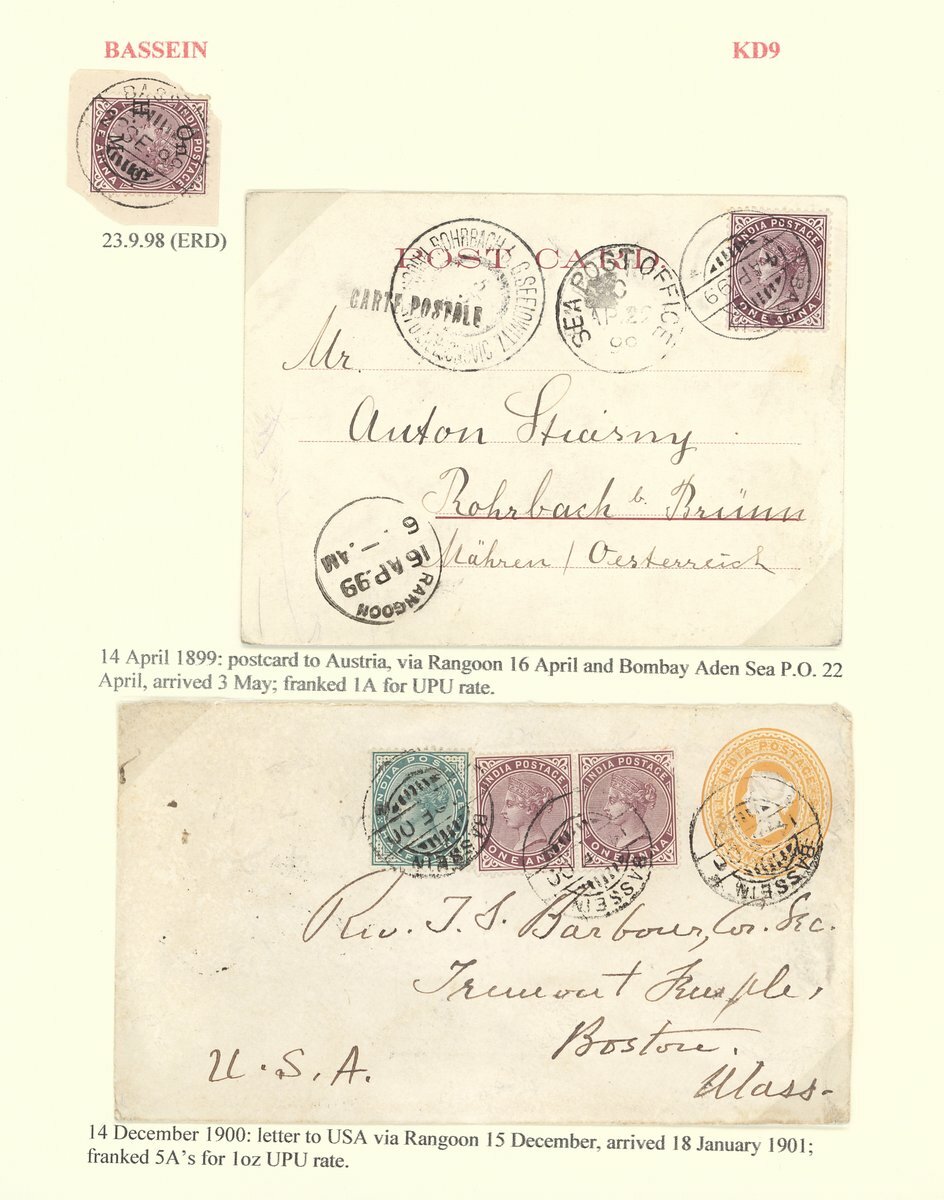 BASSEIN KD9
INDIA POSTAGE
ONE ANNA
23.9.98 (ERD)
POST CARD
CARTE POSTALE
SEA POST OFFICE
INDIA POSTAGE
ONE ANNA
Mr.
Anton Stiasny
Rohrbach b. Brünn
Mähren / Oesterreich
RANGOON
16 AP.99
14 April 1899: postcard to Austria, via Rangoon 16 April and Bombay Aden Sea P.O. 22
April, arrived 3 May; franked 1A for UPU rate.
INDIA POSTAGE
BASSEIN
INDIA POSTAGE
ONE ANNA
INDIA POSTAGE
ONE ANNA
BASSEIN
INDIA POSTAGE
BASSEIN
Rev. T. S. Barbour, Cor. Sec.
Tremont Temple,
Boston.
Mass-
U. S. A.
14 December 1900: letter to USA via Rangoon 15 December, arrived 18 January 1901;
franked 5A's for 1oz UPU rate.